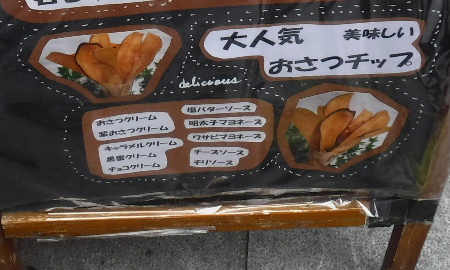 大人気 美味しい
おさつチップ
delicious
おさつクリーム
紫おさつクリーム
キャラメルクリーム
黒蜜クリーム
チョコクリーム
塩バターソース
明太子マヨネーズ
ワサビマヨネーズ
チーズソース
チリソース